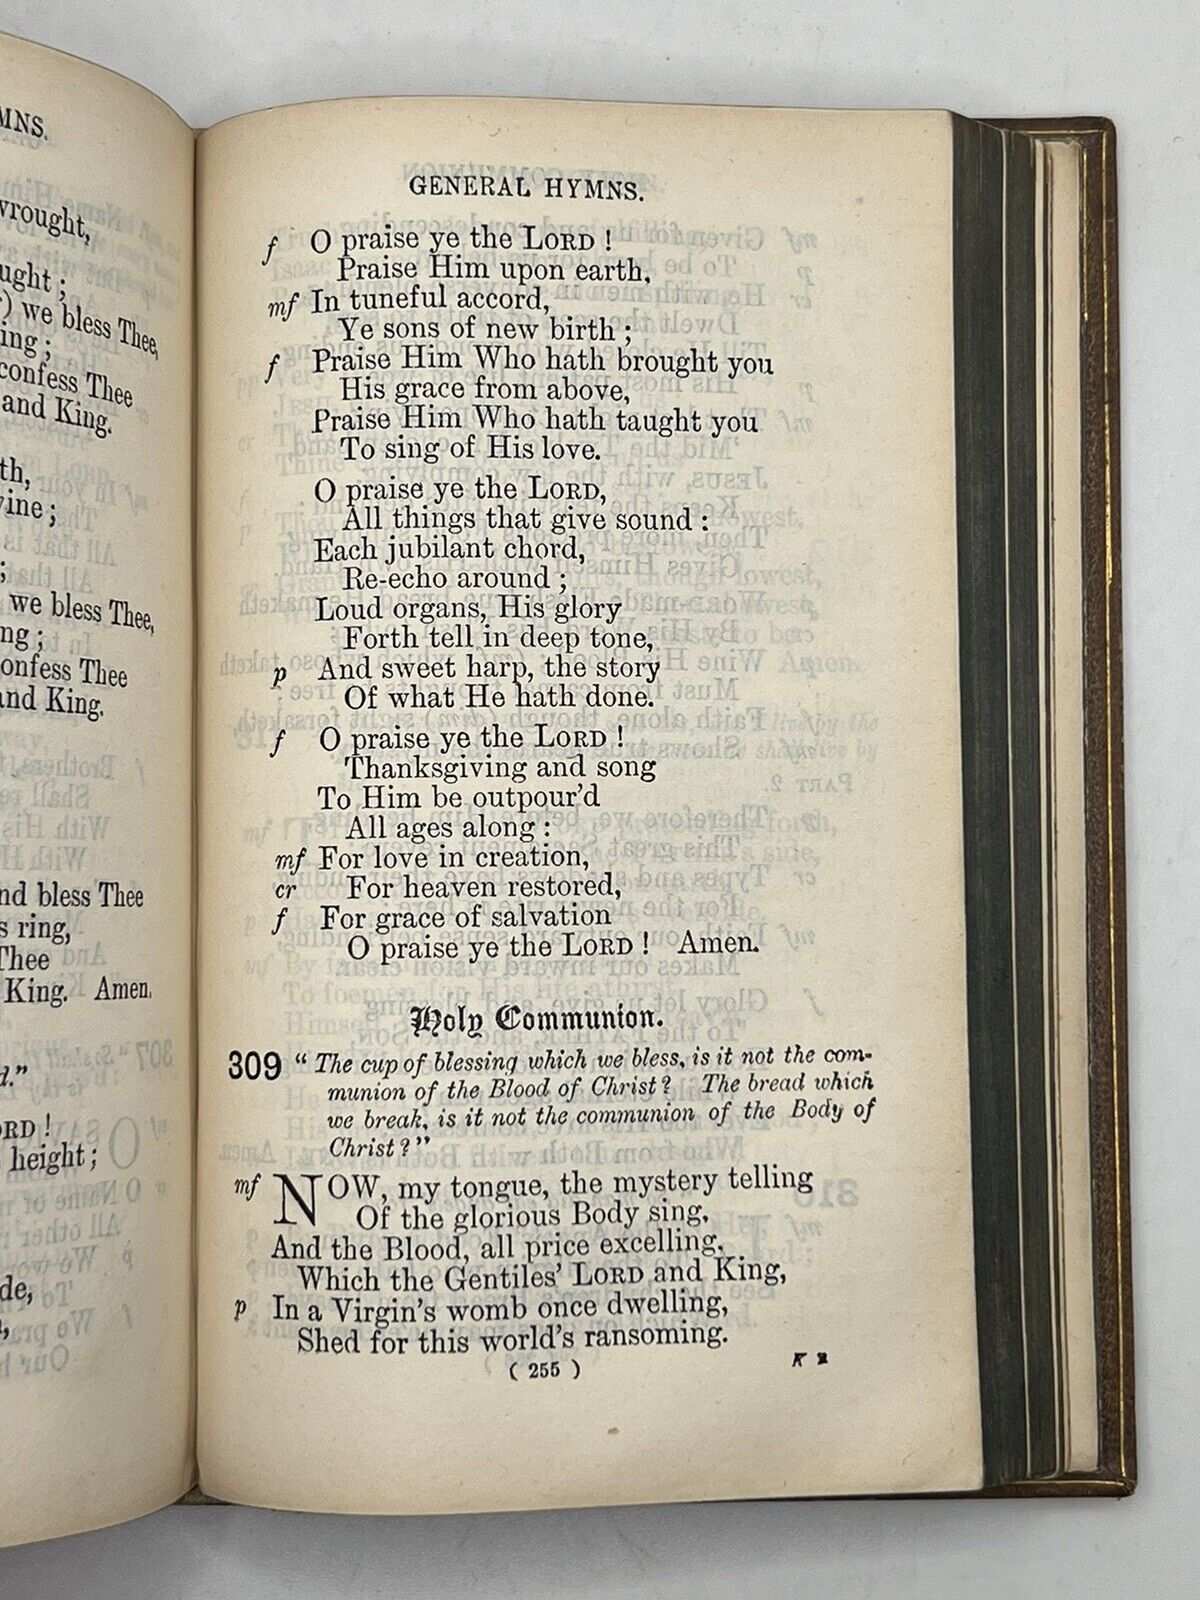 MNS.
wrought,
ught ;
) we bless Thee,
ing ;
confess Thee
and King.
th,
vine ;
;
we bless Thee,
ng ;
onfess Thee
and King.
nd bless Thee
s ring,
Thee
King. Amen.
d."
ORD !
height ;
de,
GENERAL HYMNS.
f O praise ye the LORD !
Praise Him upon earth,
mf In tuneful accord,
Ye sons of new birth ;
f Praise Him Who hath brought you
His grace from above,
Praise Him Who hath taught you
To sing of His love.
O praise ye the LORD,
All things that give sound :
Each jubilant chord,
Re-echo around ;
Loud organs, His glory
Forth tell in deep tone,
p And sweet harp, the story
Of what He hath done.
f O praise ye the LORD !
Thanksgiving and song
To Him be outpour'd
All ages along :
mf For love in creation,
cr For heaven restored,
f For grace of salvation
O praise ye the LORD ! Amen.
Holy Communion.
309 "The cup of blessing which we bless, is it not the com-
munion of the Blood of Christ? The bread which
we break, is it not the communion of the Body of
Christ?"
mf NOW, my tongue, the mystery telling
Of the glorious Body sing,
And the Blood, all price excelling,
Which the Gentiles' LORD and King,
p In a Virgin's womb once dwelling,
Shed for this world's ransoming.
( 255 ) K 2